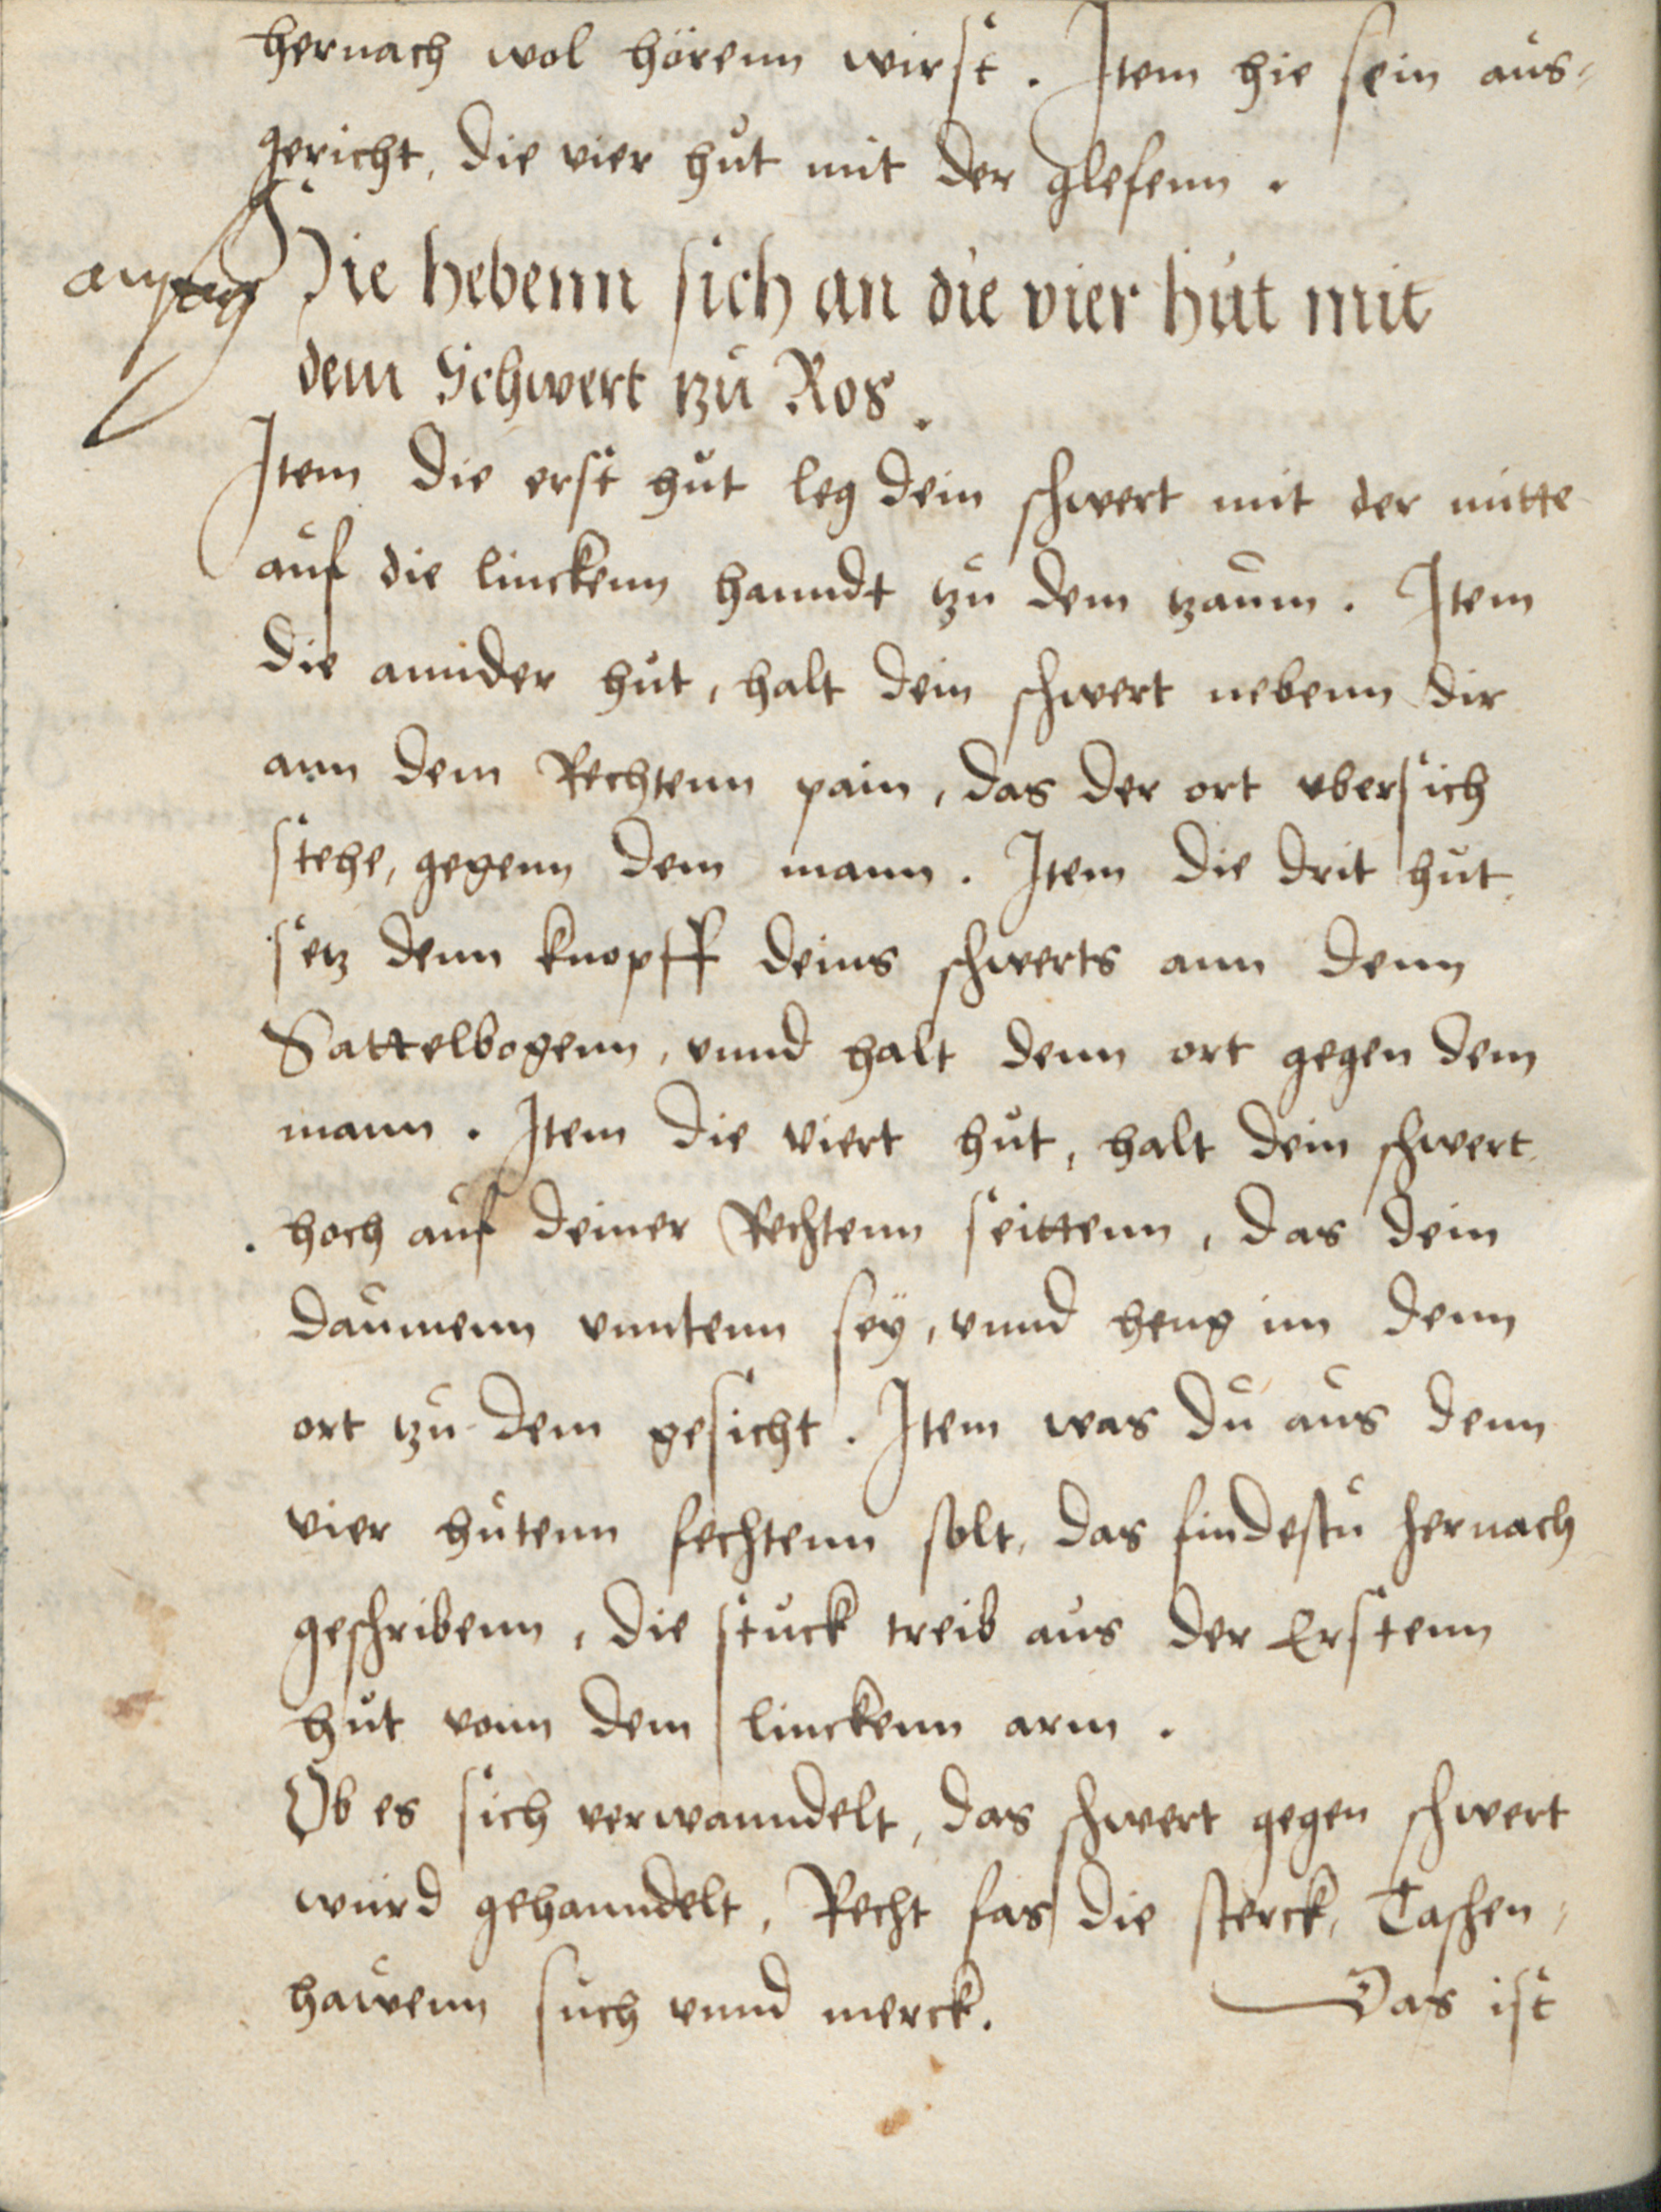 hernach wol hörenn wirst. Item hie sein aus-
gericht, die vier hut mit der glefenn.
Hie hebenn sich an die vier hut mit
dem Schwert tzu Ros.
Item die erst hut leg dein schwert mit der mitte
auf die linckenn hanndt tzu dem tzaum. Item
die annder hut, halt dein schwert nebenn dir
ann dem Rechtenn pain, das der ort vbersich
stehe, gegenn dem mann. Item die drit hut
setz denn knopff deins schwerts ann denn
Sattelbogenn, vnnd halt denn ort gegen dem
mann. Item die viert hut, halt dein schwert
hoch auf deiner Rechtenn seittenn, das dein
daumenn vnntenn seÿ, vnnd heng im denn
ort tzu dem gesicht. Item was du aus denn
vier hutenn fechtenn solt, das findestu hernach
geschribenn, die stuck treib aus der Erstenn
hut vonn dem linckenn arm.
Ob es sich verwanndelt, das schwert gegen schwert
wurd gehanndelt, Recht fas die sterck, Taschen-
hawenn such vnnd merck. Das ist